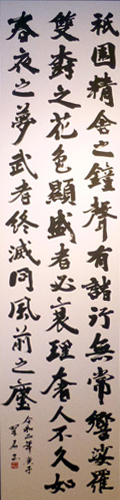 祇园精舎之鐘聲有諸行無常響娑羅
雙樹之花色顯盛者必衰理奢人不久如
春夜之夢武者終滅同風前之塵
令和二年